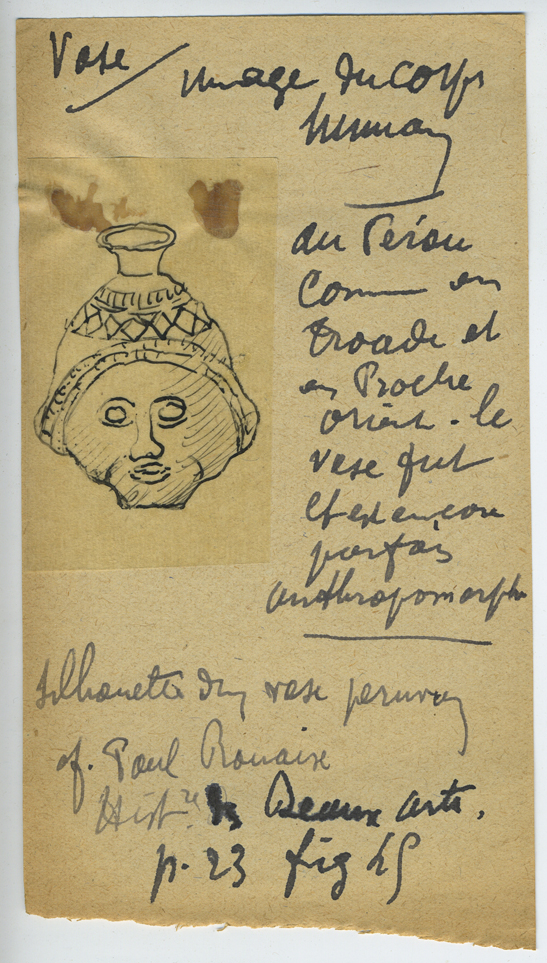 Vase / image du corps
humain
au Pérou
comme en
Troade et
en Proche
orient - le
vase fut
et est encore
parfois
anthropomorphe
silhouette d'un vase peruvien
cf. Paul Rouaix
Hist.re des Beaux arts.
p. 23 fig 45